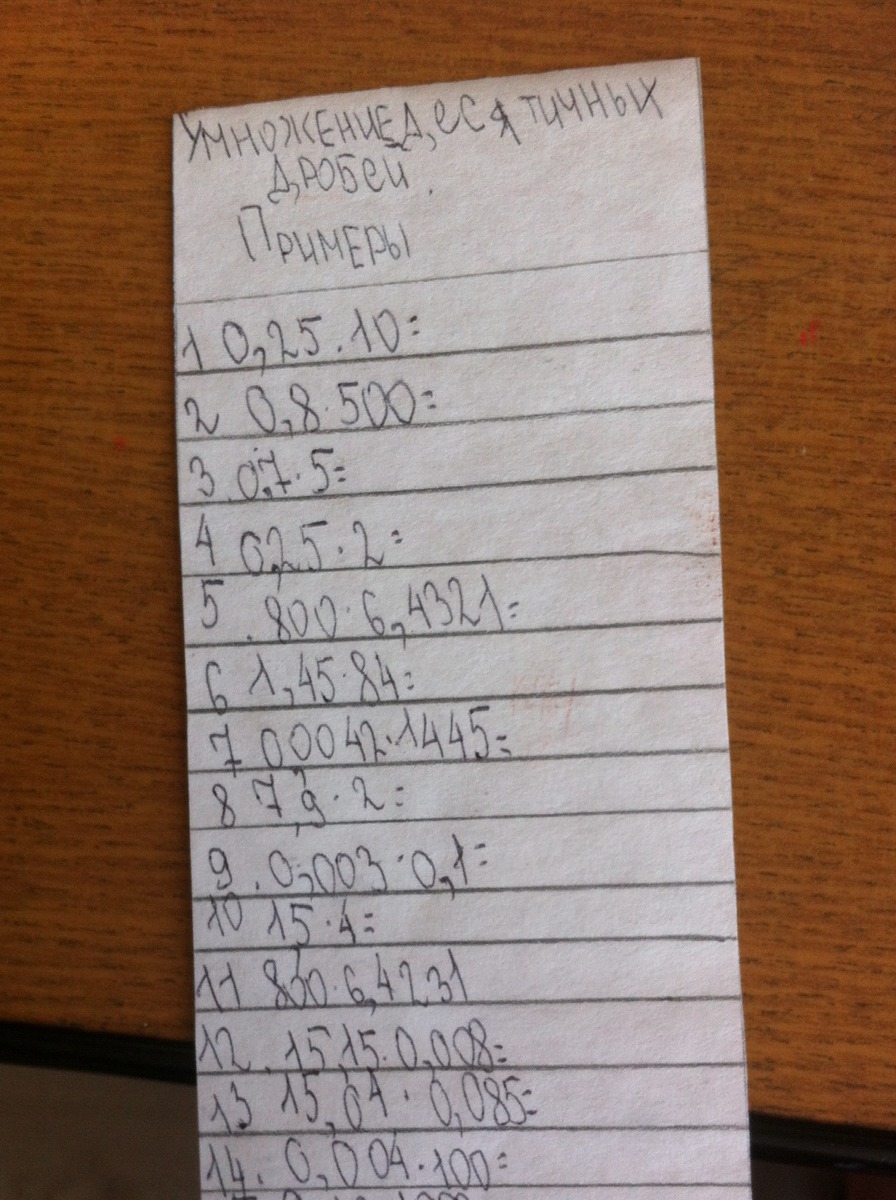 Умножение десятичных
дробей.
Примеры
1 0,25.10=
2 0,8·500=
3 0,7·5=
4 0,25·2=
5 .800·6,4321=
6 1,45·84=
7 00042·1445=
8 7,9·2=
9 .0,003·0,1=
10 15·4=
11 800·6,4231
12. 15,15·0,008=
13 15,04·0,085=
14. 0,004·100=